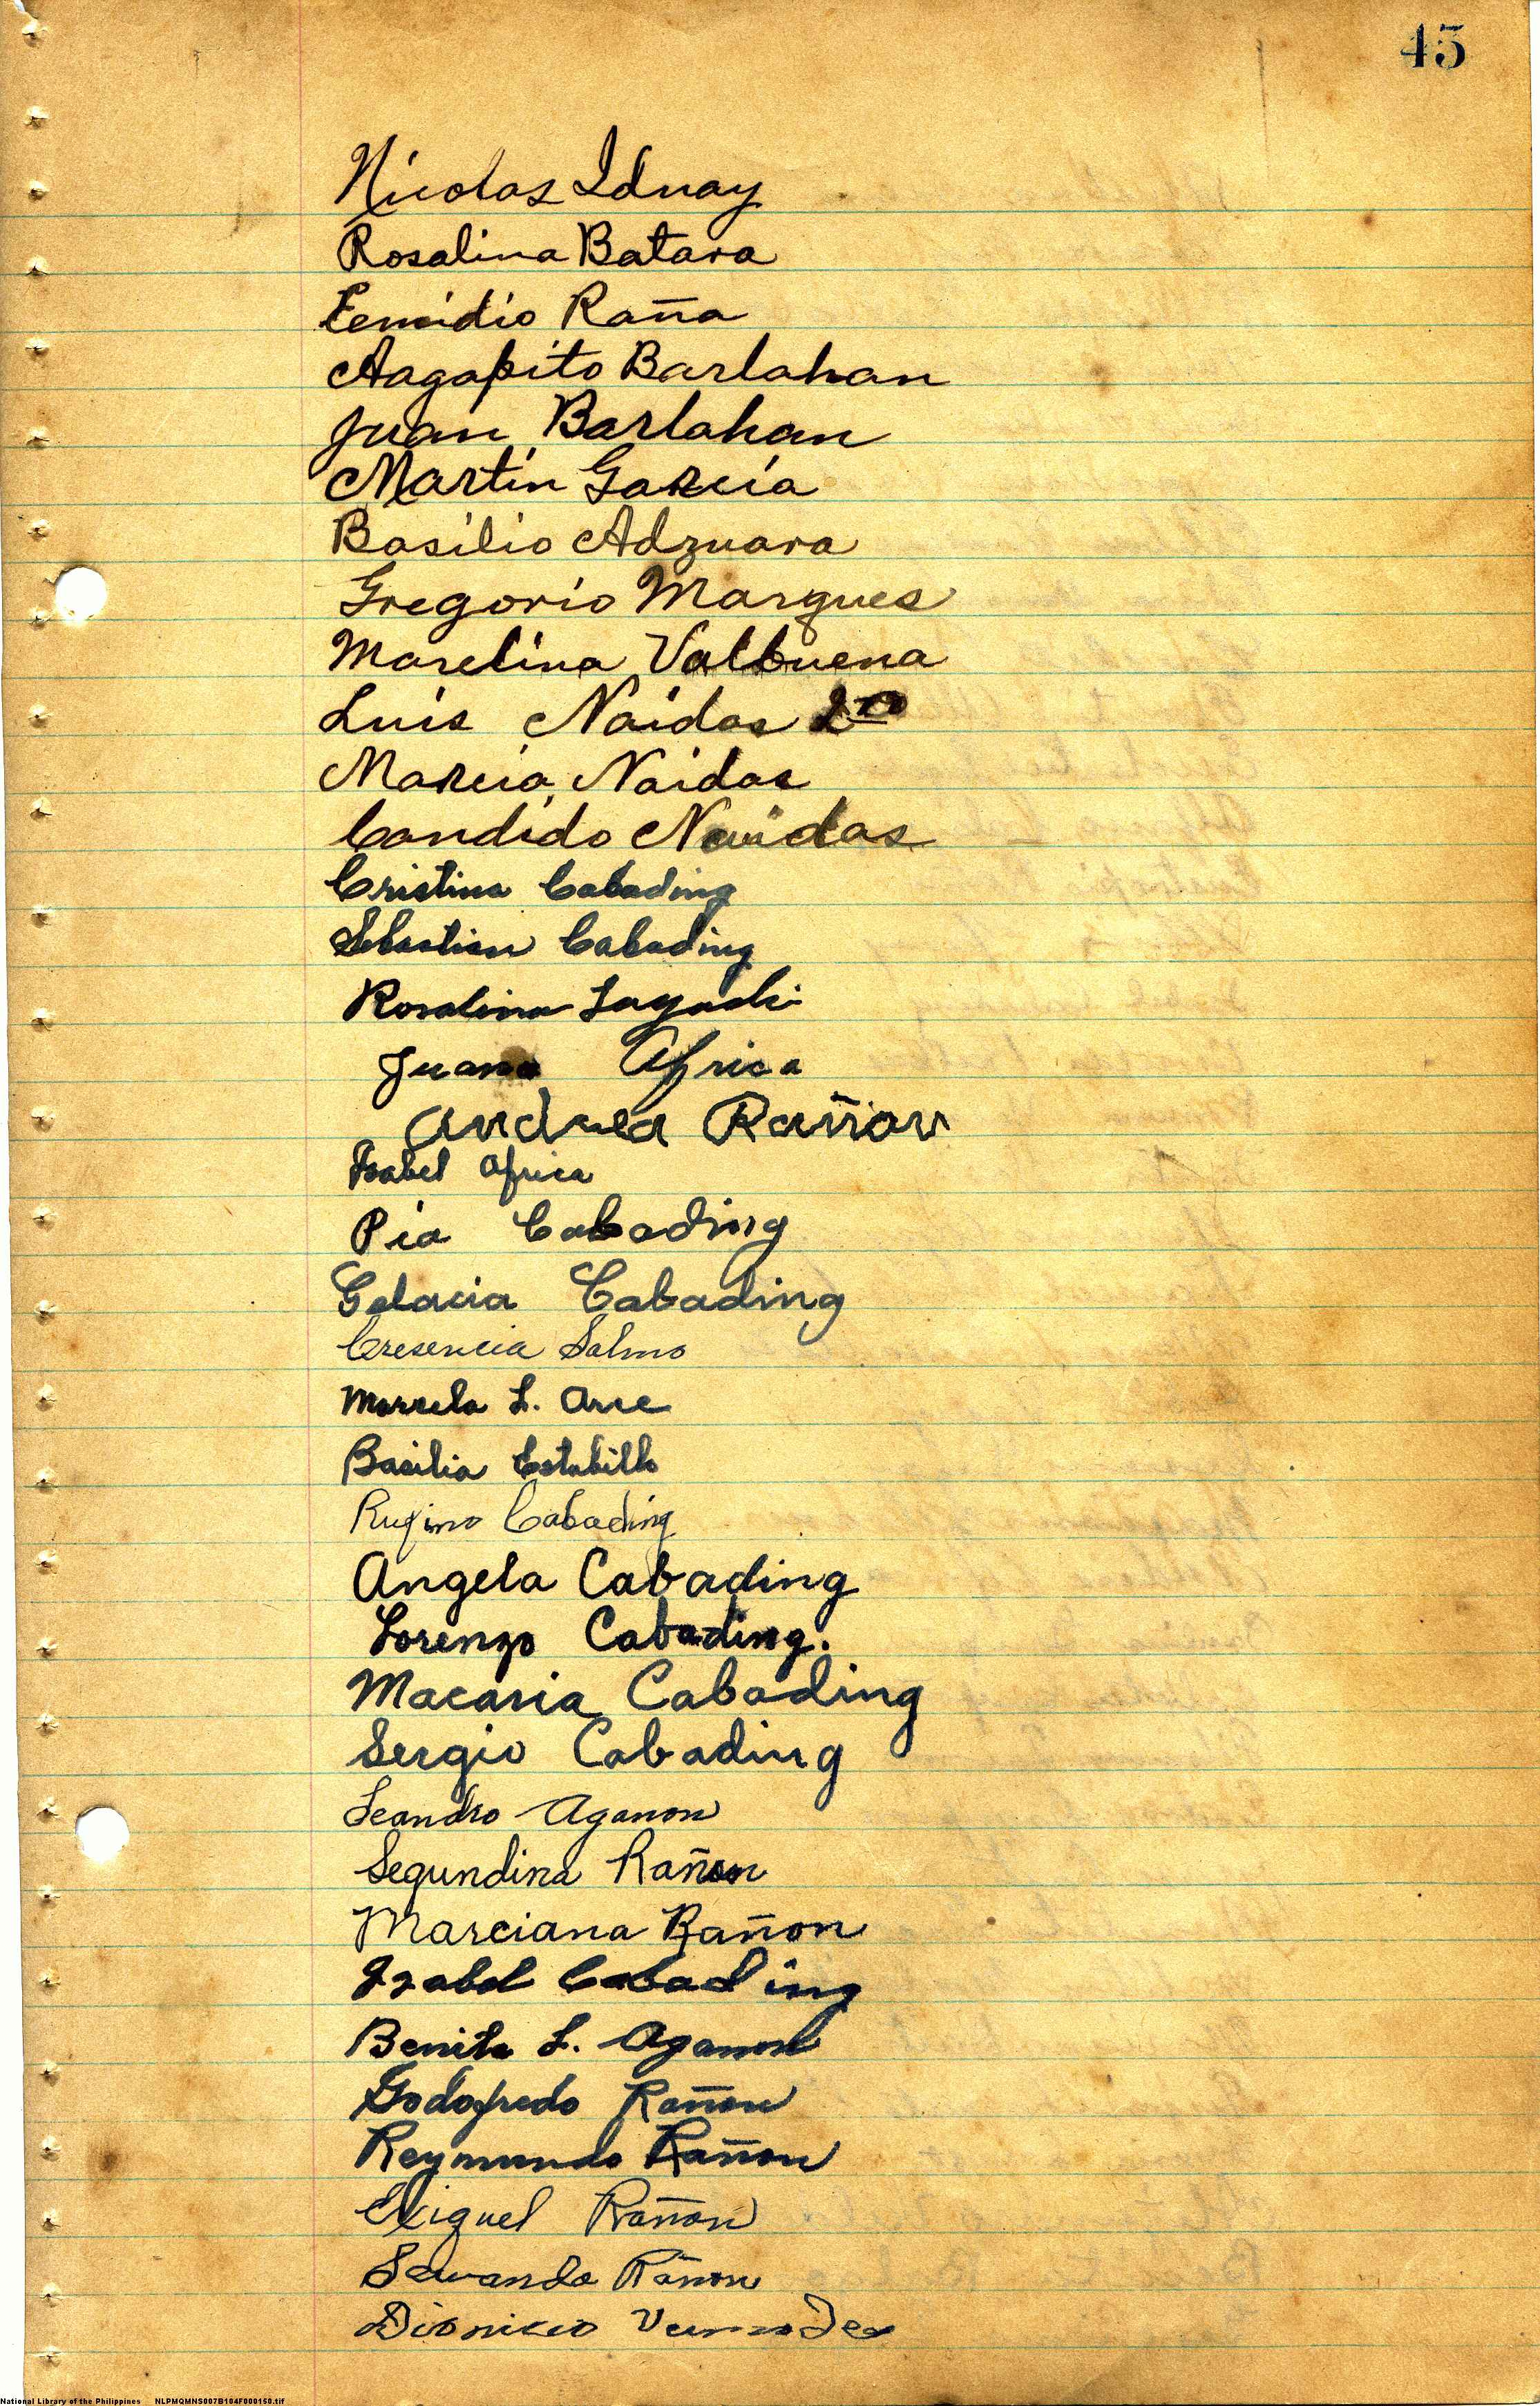 45
Nicolas Idnay
Rosalina Batara
Eemidio Raña
Aagapito Barlahan
Juan Barlahan
Martin Garcia
Basilio Adzuara
Gregorio Marques
Marelina Valbuena
Luis Naidas 2º
Marcia Naidas
Candido Navidas
Cristina Cabading
Sebastian Cabading
Rosalina
Juana Africa
Andrea Rañon
Isabel Africa
Pia Cabading
Galacia Cabading
Cresencia Salmo
Marcela L. Arce
Basilia Estabillo
Rufino Cabading
Angela Cabading
Lorenzo Cabading.
Macaria Cabading
Sergio Cabading
Leandro Aganon
Segundina Rañon
Marciana Rañon
Isabel Cabading
Benita L. Aganon
Godofredo Rañon
Reymundo Rañon
Rañon
Rañon
Dionicio
National Library of the Philippines NLPMQMNS007B104F000150.tif